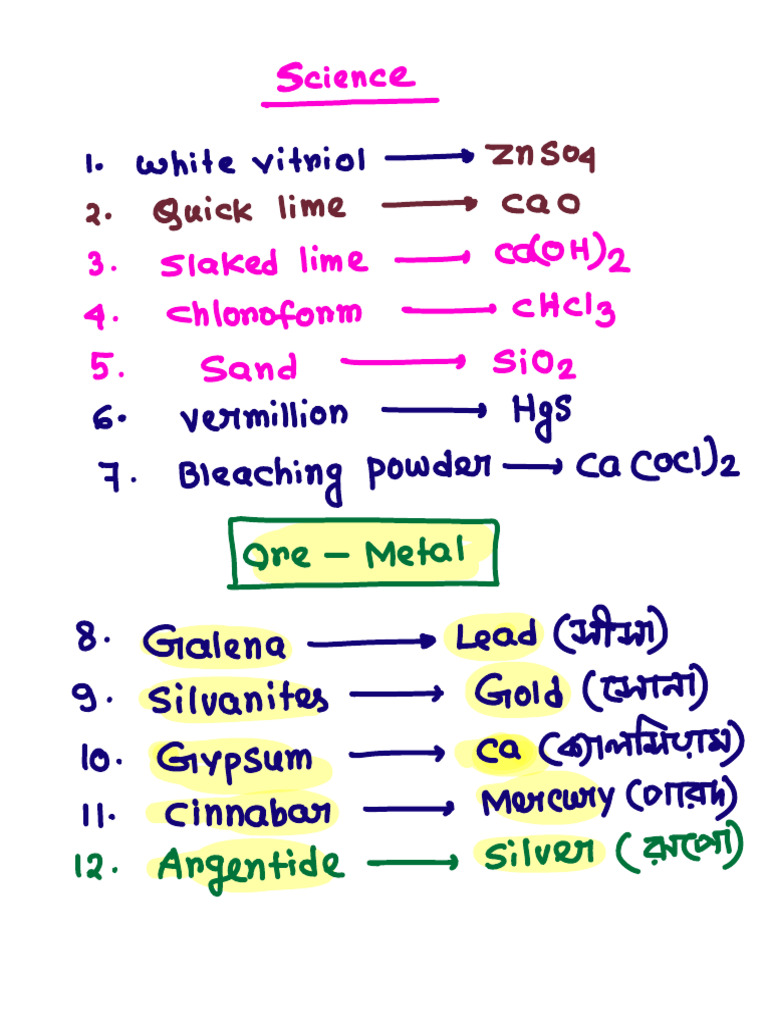 Science
1. White vitriol → ZnSO4
2. Quick lime → CaO
3. Slaked lime → Ca(OH)2
4. Chloroform → CHCl3
5. Sand → SiO2
6. Vermillion → HgS
7. Bleaching powder → Ca(OCl)2
Ore - Metal
8. Galena → Lead (সীসা)
9. Silvanites → Gold (সোনা)
10. Gypsum → Ca (ক্যালসিয়াম)
11. Cinnabar → Mercury (পারদ)
12. Argentide → Silver (রূপো)